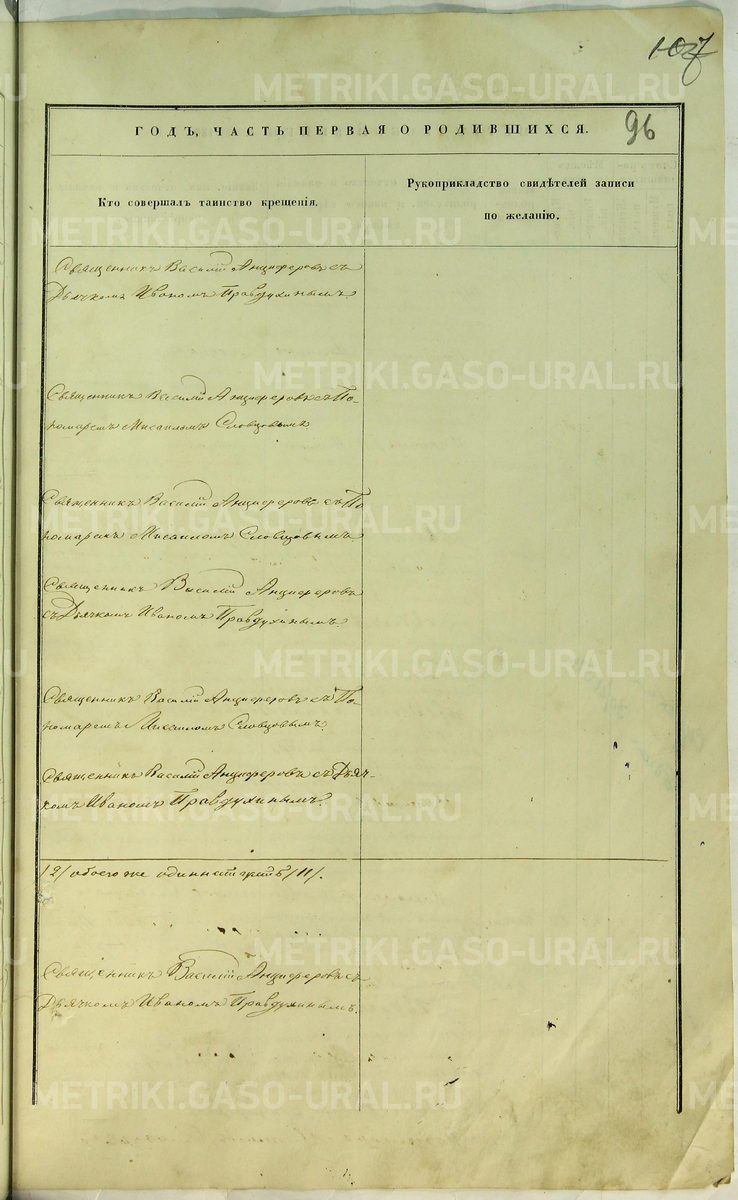 107
96
ГОДЪ, ЧАСТЬ ПЕРВАЯ О РОДИВШИХСЯ.
Кто совершалъ таинство крещенія.
Рукоприкладство свидѣтелей записи
по желанію.
Священникъ Василій Анциферовъ съ
Дьячкомъ Иваномъ Правдухинымъ
Священникъ Василій Анциферовъ съ По-
номаремъ Мисаиломъ Словцовымъ
Священникъ Василій Анциферовъ съ По
номаремъ Мисаиломъ Словцовымъ
Священникъ Василій Анциферовъ
съ Дьячкомъ Иваномъ Правдухинымъ.
Священникъ Василій Анциферовъ съ По
номаремъ Мисаиломъ Словцовымъ.
Священникъ Василій Анциферовъ съ Дьяч-
комъ Иваномъ Правдухинымъ.
/2/ обоего же одиннатцать /11/.
Священникъ Василій Анциферовъ съ
Дьячкомъ Иваномъ Правдухинымъ.
METRIKI.GASO-URAL.RU